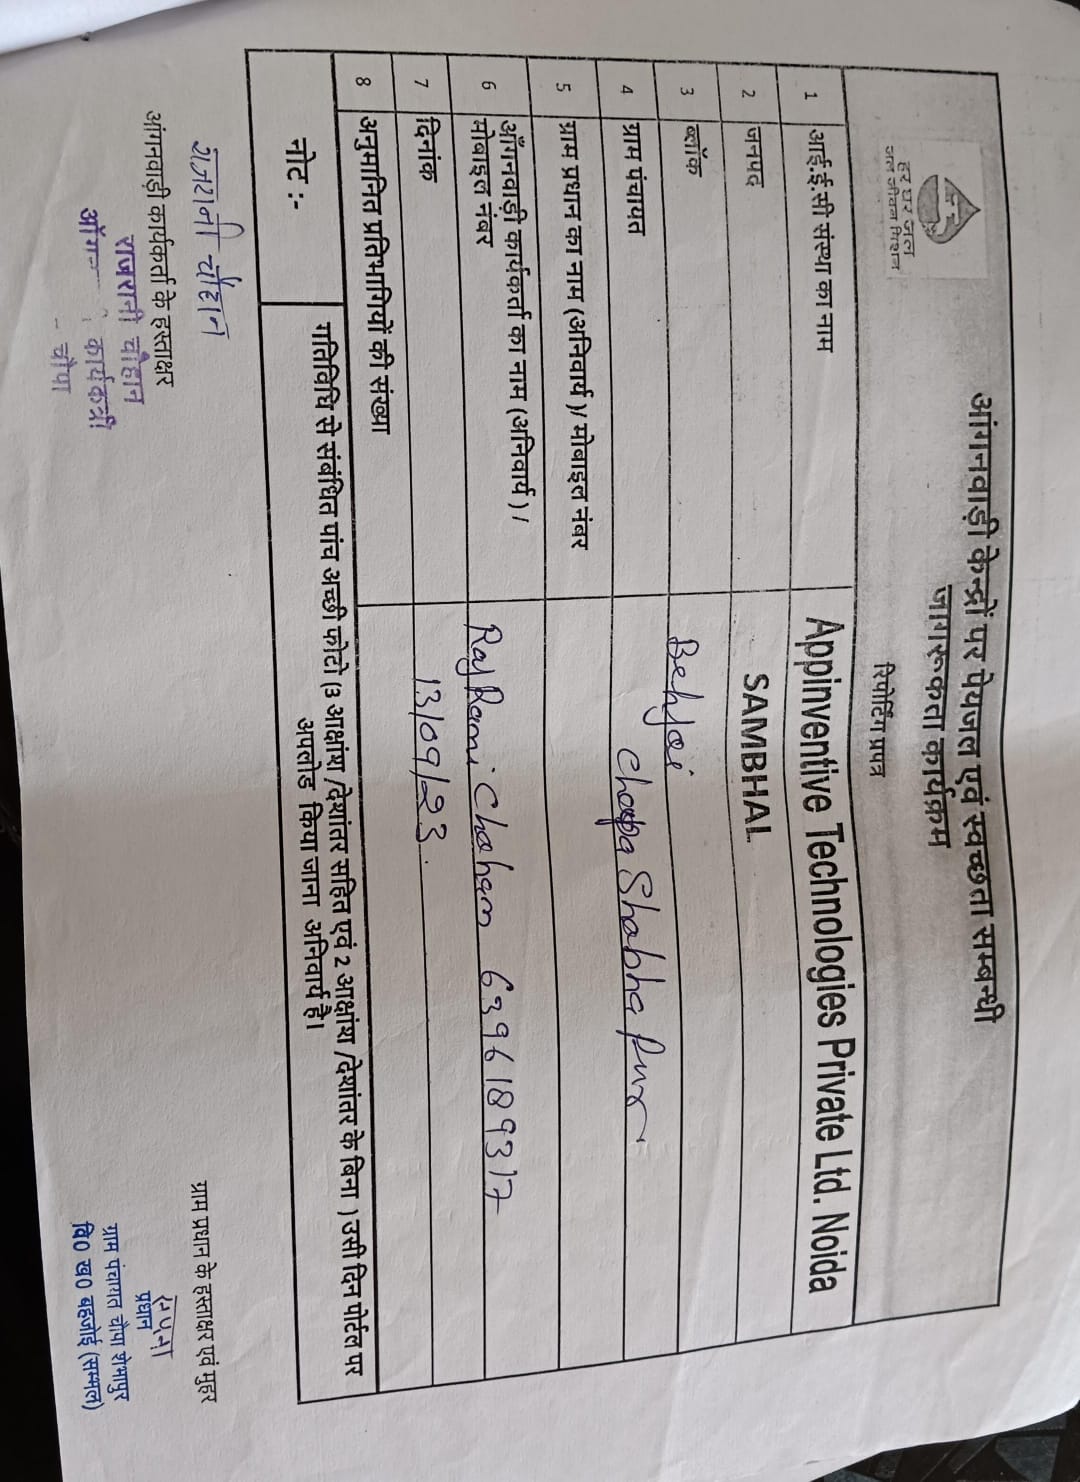 हर घर जल
जल जीवन मिशन
आंगनवाड़ी केन्द्रों पर पेयजल एवं स्वच्छता सम्बन्धी
जागरूकता कार्यक्रम
रिपोर्टिंग प्रपत्र
1 आई.ई.सी संस्था का नाम Appinventive Technologies Private Ltd. Noida
2 जनपद SAMBHAL
3 ब्लॉक Behjoi
4 ग्राम पंचायत Chopa Shobha Pur
5 ग्राम प्रधान का नाम (अनिवार्य )/ मोबाइल नंबर
6 आँगनवाड़ी कार्यकर्ता का नाम (अनिवार्य ) /
मोबाइल नंबर Raj Rani Chohan 6396189317
7 दिनांक 13/09/23.
8 अनुमानित प्रतिभागियों की संख्या
नोट :- गतिविधि से संबंधित पांच अच्छी फोटो (3 आक्षांश /देशांतर सहित एवं 2 आक्षांश /देशांतर के बिना ) उसी दिन पोर्टल पर
अपलोड किया जाना अनिवार्य है।
राजरानी चौहान
आंगनवाड़ी कार्यकर्ता के हस्ताक्षर
राजरानी चौहान
आँग कार्यकत्री
- चौपा
ग्राम प्रधान के हस्ताक्षर एवं मुहर
प्रधान
ग्राम पंचायत चौपा शोभापुर
वि0 ख0 बहजोई (सम्भल)